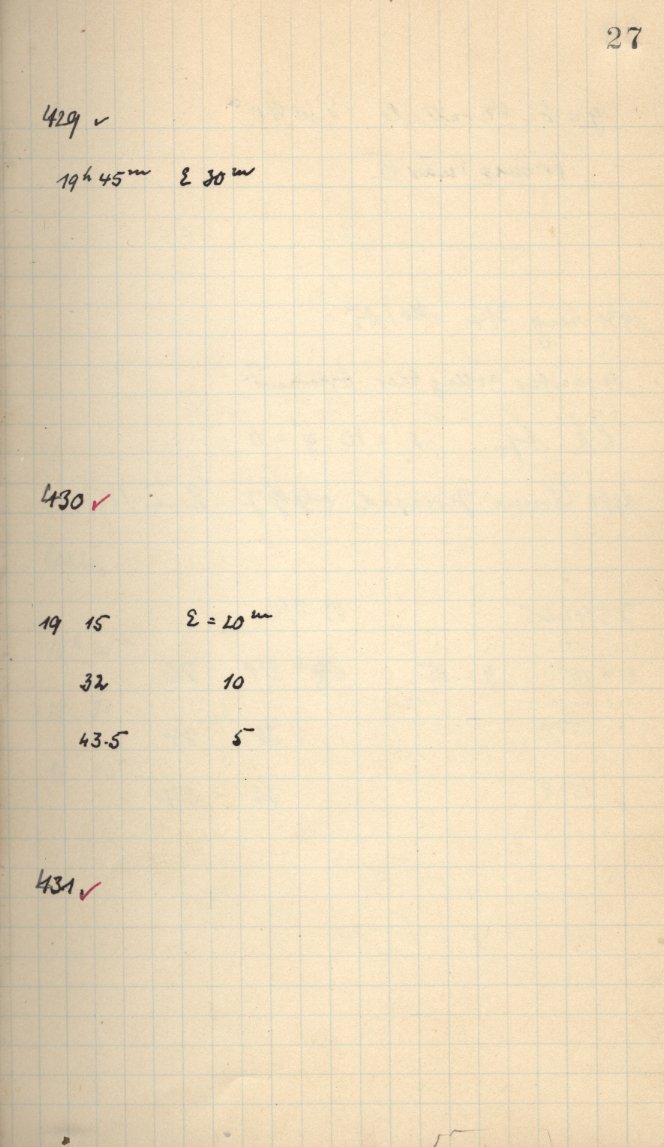 27
429 ✓
19h 45m Σ 30m
430 ✓
19 15 Σ = 20m
32 10
43.5 5
431 ✓